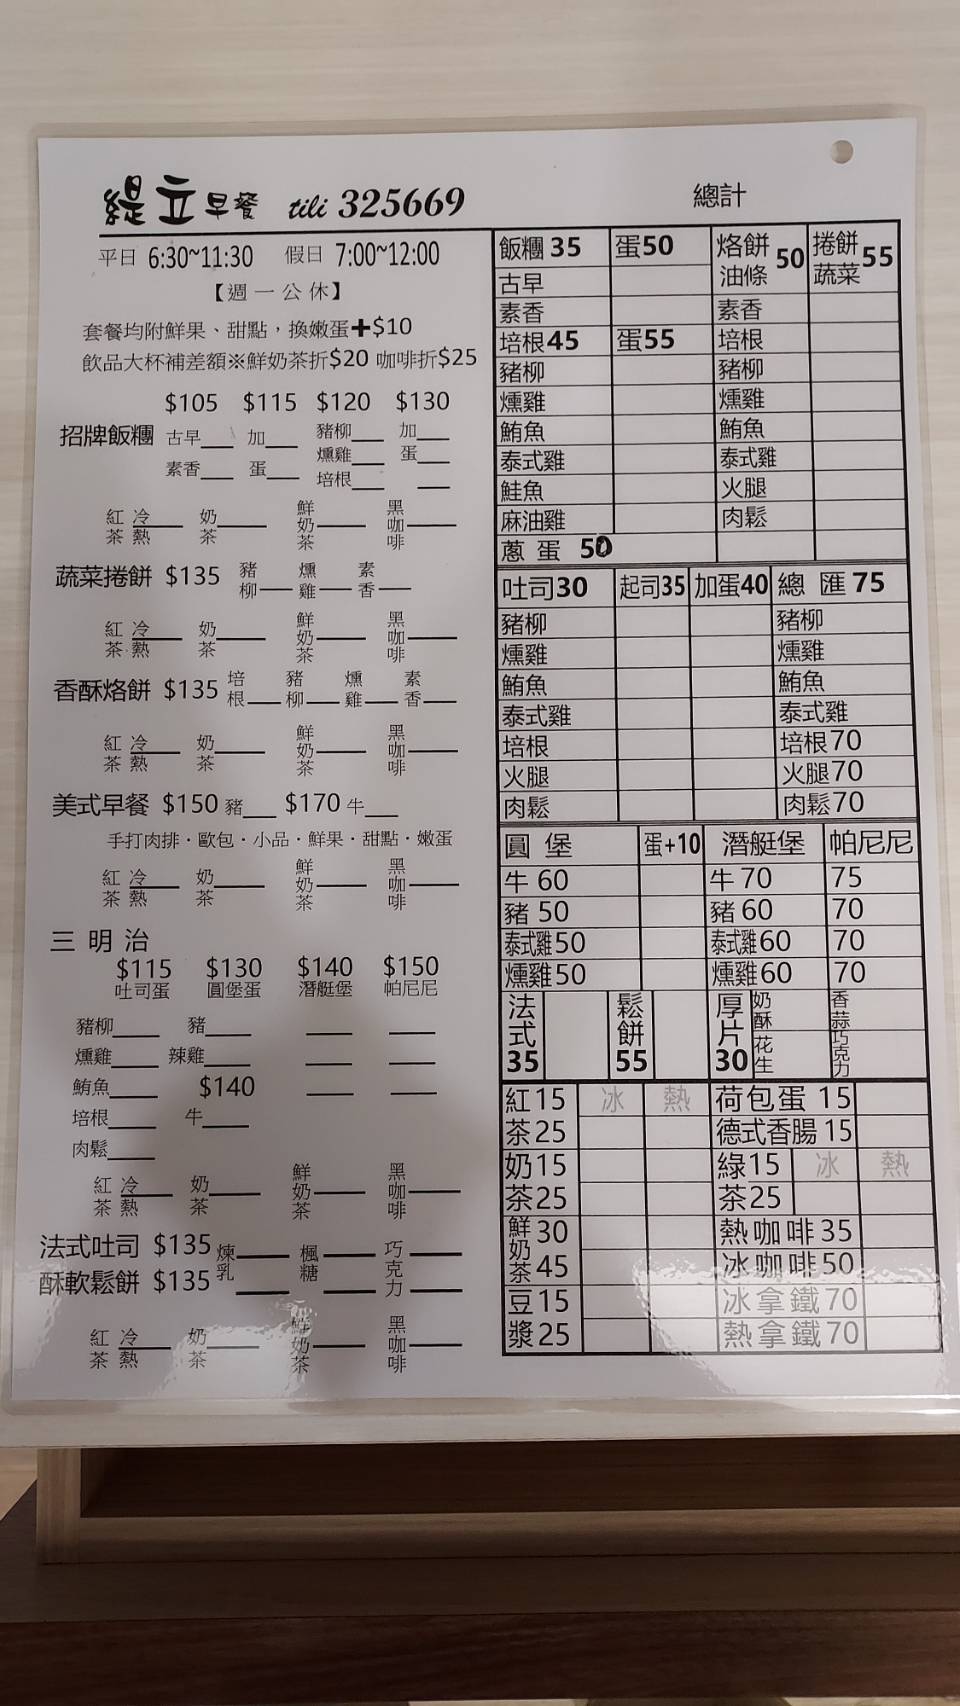 緹立早餐 tili 325669
總計
平日 6:30~11:30 假日 7:00~12:00
【週一公休】
套餐均附鮮果、甜點,換嫩蛋+$10
飲品大杯補差額※鮮奶茶折$20 咖啡折$25
$105 $115 $120 $130
招牌飯糰 古早___ 加___ 豬柳___ 加___
燻雞___ 蛋___
素香___ 蛋___ 培根___ ___
紅茶 冷熱 奶茶 鮮奶茶 黑咖啡
蔬菜捲餅 $135 豬柳 燻雞 素香
紅茶 冷熱 奶茶 鮮奶茶 黑咖啡
香酥烙餅 $135 培根 豬柳 燻雞 素香
紅茶 冷熱 奶茶 鮮奶茶 黑咖啡
美式早餐 $150 豬___ $170 牛___
手打肉排·歐包·小品·鮮果·甜點·嫩蛋
紅茶 冷熱 奶茶 鮮奶茶 黑咖啡
三明治
$115 $130 $140 $150
吐司蛋 圓堡蛋 潛艇堡 帕尼尼
豬柳___ 豬___ ___ ___
燻雞___ 辣雞___ ___ ___
鮪魚___ $140 ___ ___
培根___ 牛___
肉鬆___
紅茶 冷熱 奶茶 鮮奶茶 黑咖啡
法式吐司 $135 煉乳 楓糖 巧克力
酥軟鬆餅 $135
紅茶 冷熱 奶茶 鮮奶茶 黑咖啡
飯糰 35 蛋50 烙餅油條 50 捲餅蔬菜 55
古早
素香 素香
培根45 蛋55 培根
豬柳 豬柳
燻雞 燻雞
鮪魚 鮪魚
泰式雞 泰式雞
鮭魚 火腿
麻油雞 肉鬆
蔥蛋 50
吐司30 起司35 加蛋40 總匯75
豬柳 豬柳
燻雞 燻雞
鮪魚 鮪魚
泰式雞 泰式雞
培根 培根70
火腿 火腿70
肉鬆 肉鬆70
圓堡 蛋+10 潛艇堡 帕尼尼
牛 60 牛 70 75
豬 50 豬 60 70
泰式雞50 泰式雞60 70
燻雞50 燻雞60 70
法式35 鬆餅55 厚片30 奶酥 香蒜
花生 巧克力
紅15 冰 熱 荷包蛋 15
茶25 德式香腸 15
奶15 綠15 冰 熱
茶25 茶25
鮮奶茶 30 熱咖啡 35
45 冰咖啡50
豆15 冰拿鐵 70
漿25 熱拿鐵 70